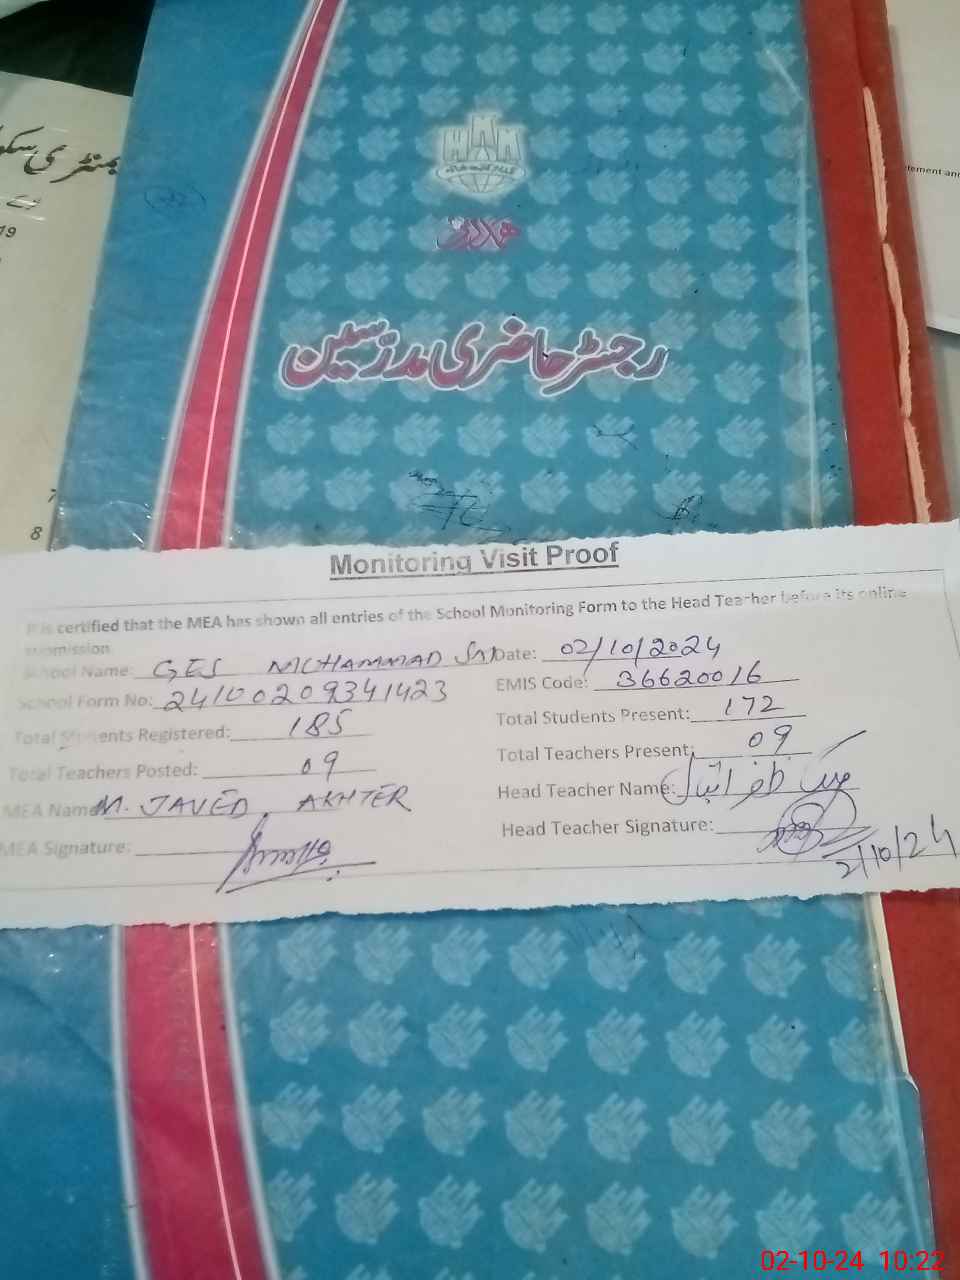 ہمدانی
رجسٹر حاضری مدرسین
19
7
8
tement and
Monitoring Visit Proof
It is certified that the MEA has shown all entries of the School Monitoring Form to the Head Teacher before its online
submission
School Name: GES MOHAMMAD Date: 02/10/2024
School Form No: 24100209341423 EMIS Code: 36620016
Total Students Registered: 185 Total Students Present: 172
Total Teachers Posted: 09 Total Teachers Present: 09
MEA Name: M. JAVED AKHTER Head Teacher Name: ملک ظفر اقبال
MEA Signature: Head Teacher Signature:
2/10/24
02-10-24 10:22